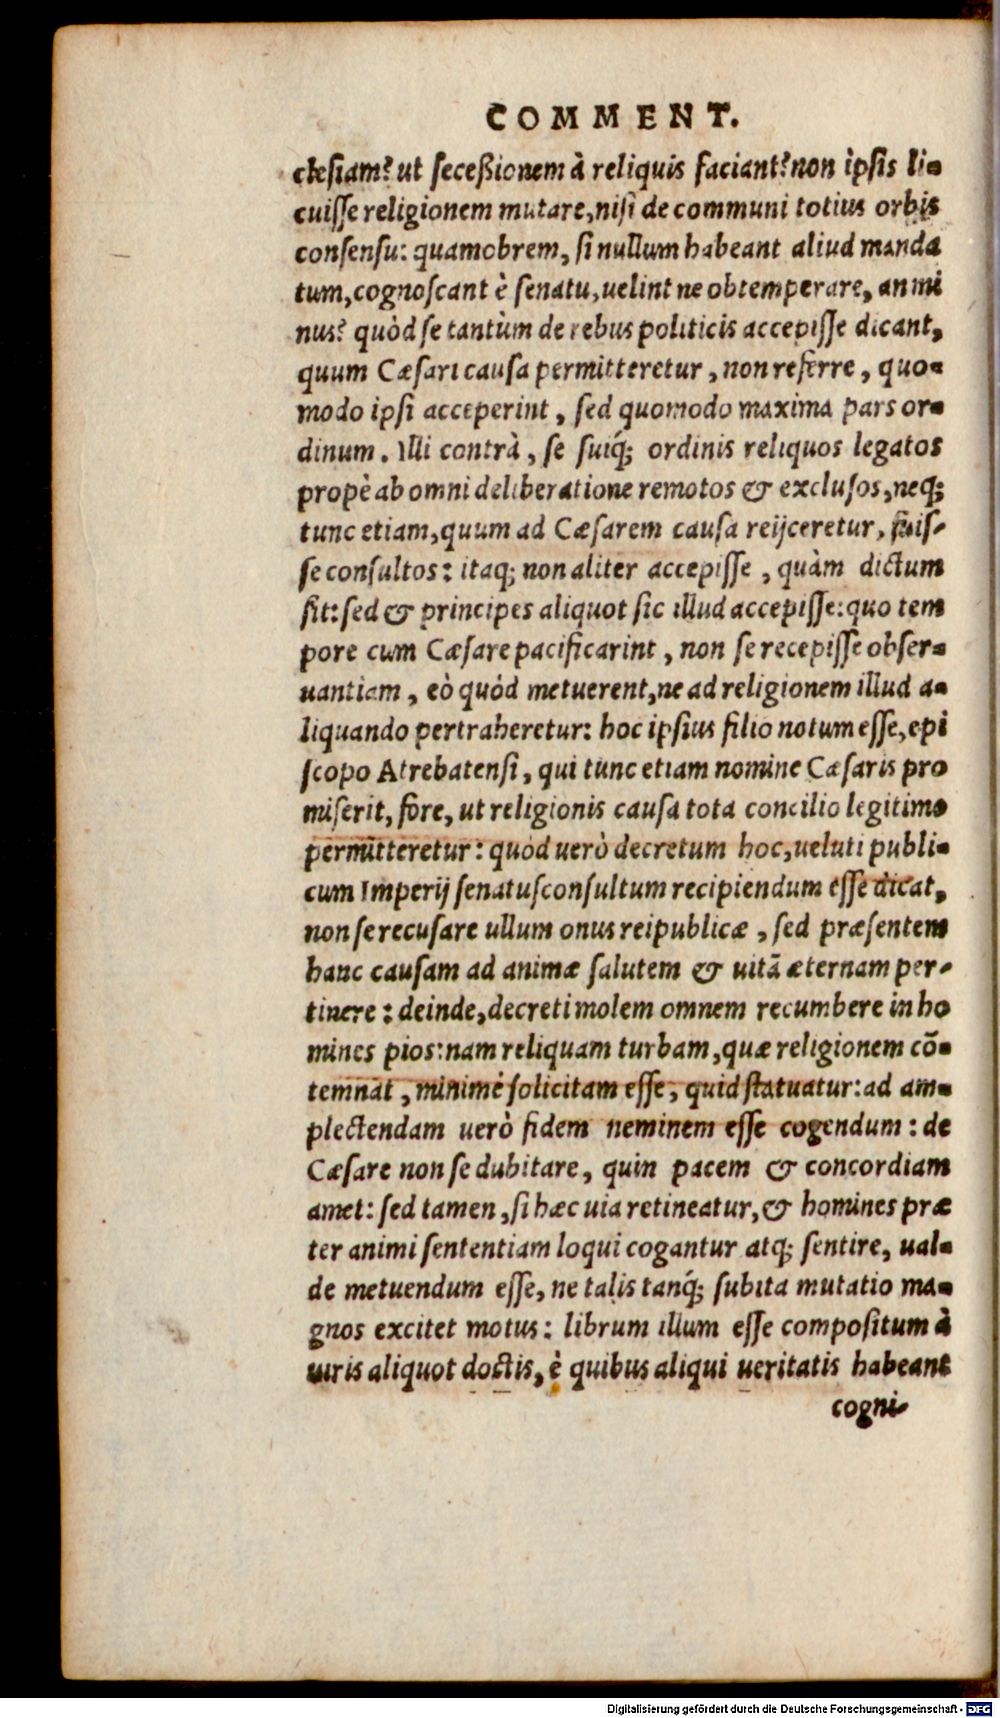 COMMENT.
clesiam? ut seceßionem à reliquis faciant? non ipsis li-
cuisse religionem mutare, nisi de communi totius orbis
consensu: quamobrem, si nullum habeant aliud manda
tum, cognoscant è senatu, uelint ne obtemperare, an mi
nus? quòd se tantùm de rebus politicis accepisse dicant,
quum Cæsari causa permitteretur, non referre, quo-
modo ipsi acceperint, sed quomodo maxima pars or-
dinum. Illi contrà, se suiq́; ordinis reliquos legatos
propè ab omni deliberatione remotos & exclusos, neq;
tunc etiam, quum ad Cæsarem causa reijceretur, fuis-
se consultos: itaq; non aliter accepisse, quàm dictum
sit: sed & principes aliquot sic illud accepisse: quo tem
pore cum Cæsare pacificarint, non se recepisse obser-
uantiam, eò quòd metuerent, ne ad religionem illud a-
liquando pertraheretur: hoc ipsius filio notum esse, epi
scopo Atrebatensi, qui tunc etiam nomine Cæsaris pro
miserit, fore, ut religionis causa tota concilio legitimo
permitteretur: quòd uerò decretum hoc, ueluti publi-
cum Imperij senatusconsultum recipiendum esse dicat,
non se recusare ullum onus reipublicæ, sed præsentem
hanc causam ad animæ salutem & uitã æternam per-
tinere: deinde, decreti molem omnem recumbere in ho
mines pios: nam reliquam turbam, quæ religionem cõ-
temnat, minimè solicitam esse, quid statuatur: ad am-
plectendam uerò fidem neminem esse cogendum: de
Cæsare non se dubitare, quin pacem & concordiam
amet: sed tamen, si hæc uia retineatur, & homines præ
ter animi sententiam loqui cogantur atq; sentire, ual-
de metuendum esse, ne talis tanq́; subita mutatio ma-
gnos excitet motus: librum illum esse compositum à
uiris aliquot doctis, è quibus aliqui ueritatis habeant
cogni-
Digitalisierung gefördert durch die Deutsche Forschungsgemeinschaft - DFG